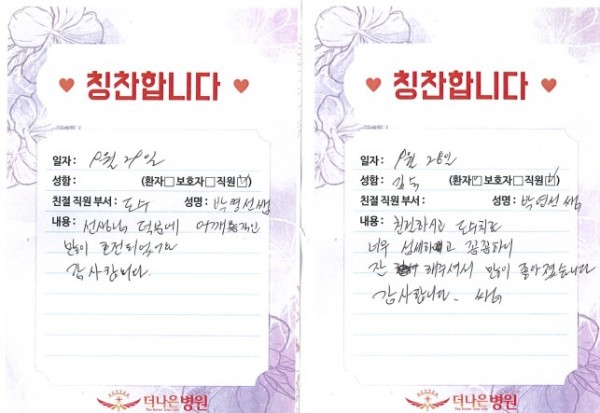 칭찬합니다
일자: 9월 29일
성함: (환자□ 보호자□ 직원☑)
친절 직원 부서: 도수 성명: 박영선쌤
내용: 선생님 덕분에 어깨
많이 호전되었어요
감사합니다.
더나은병원
칭찬합니다
일자: 9월 28일
성함: 김 (환자☑ 보호자□ 직원☑)
친절 직원 부서: 성명: 박영선 쌤
내용: 친절하시고 도수치료
너무 섬세하고 꼼꼼하니
잘 해주셔서 많이 좋아졌습니다
감사합니다.
더나은병원